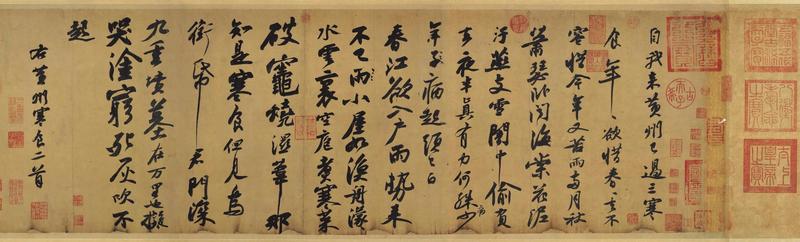 自我來黃州已過三寒
食年〻欲惜春春去不
容惜今年又苦雨兩月秋
蕭瑟臥聞海棠花泥
汙燕支雪闇中偷負
去夜半真有力何殊病少
年子病起頭已白
春江欲入戶雨勢來
不已雨小屋如漁舟濛〻
水雲裏空庖煮寒菜
破竈燒濕葦那
知是寒食但見烏
銜帋君門深
九重墳墓在萬里也擬
哭塗窮死灰吹不
起
右黃州寒食二首